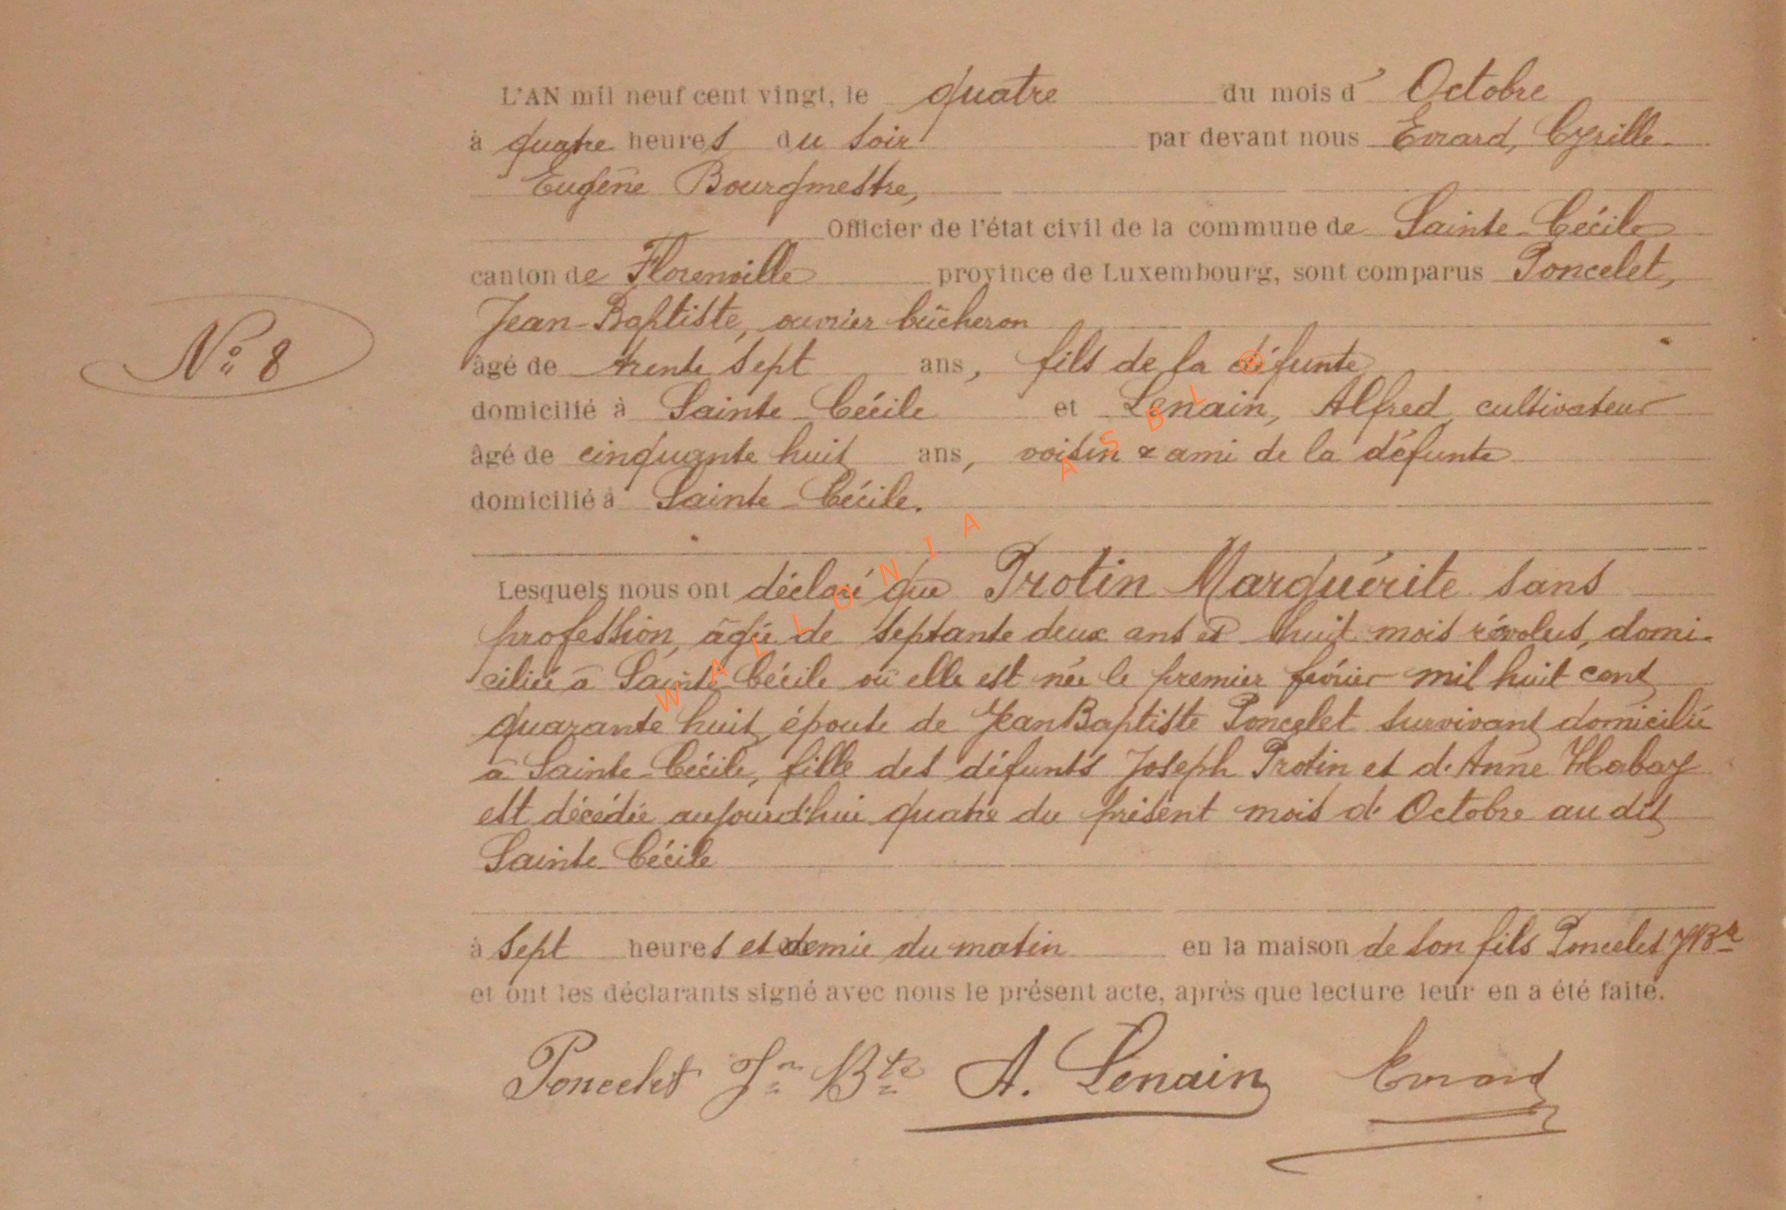 L'AN mil neuf cent vingt, le quatre du mois d' Octobre
à quatre heures du soir par devant nous Evrard, Cyrille
Eugène Bourgmestre,
Officier de l'état civil de la commune de Sainte-Cécile
canton de Florenville province de Luxembourg, sont comparus Poncelet,
Jean-Baptiste, ouvrier bûcheron
N° 8
âgé de trente sept ans, fils de la défunte
domicilié à Sainte-Cécile et Lenain, Alfred, cultivateur
âgé de cinquante huit ans, voisin & ami de la défunte
domicilié à Sainte-Cécile.
Lesquels nous ont déclaré que Protin Marguérite sans
profession, âgée de septante deux ans et huit mois révolus, domi-
ciliée à Sainte-Cécile où elle est née le premier février mil huit cent
quarante huit, épouse de Jean Baptiste Poncelet survivant domicilié
à Sainte-Cécile, fille des défunts Joseph Protin et d'Anne Habay
est décédée aujourd'hui quatre du présent mois d'Octobre au dit
Sainte Cécile
à sept heures et demie du matin en la maison de son fils Poncelet JnBte
et ont les déclarants signé avec nous le présent acte, après que lecture leur en a été faite.
Poncelet Jn Bte A. Lenain Evrard
WALLONIA ASBL ©